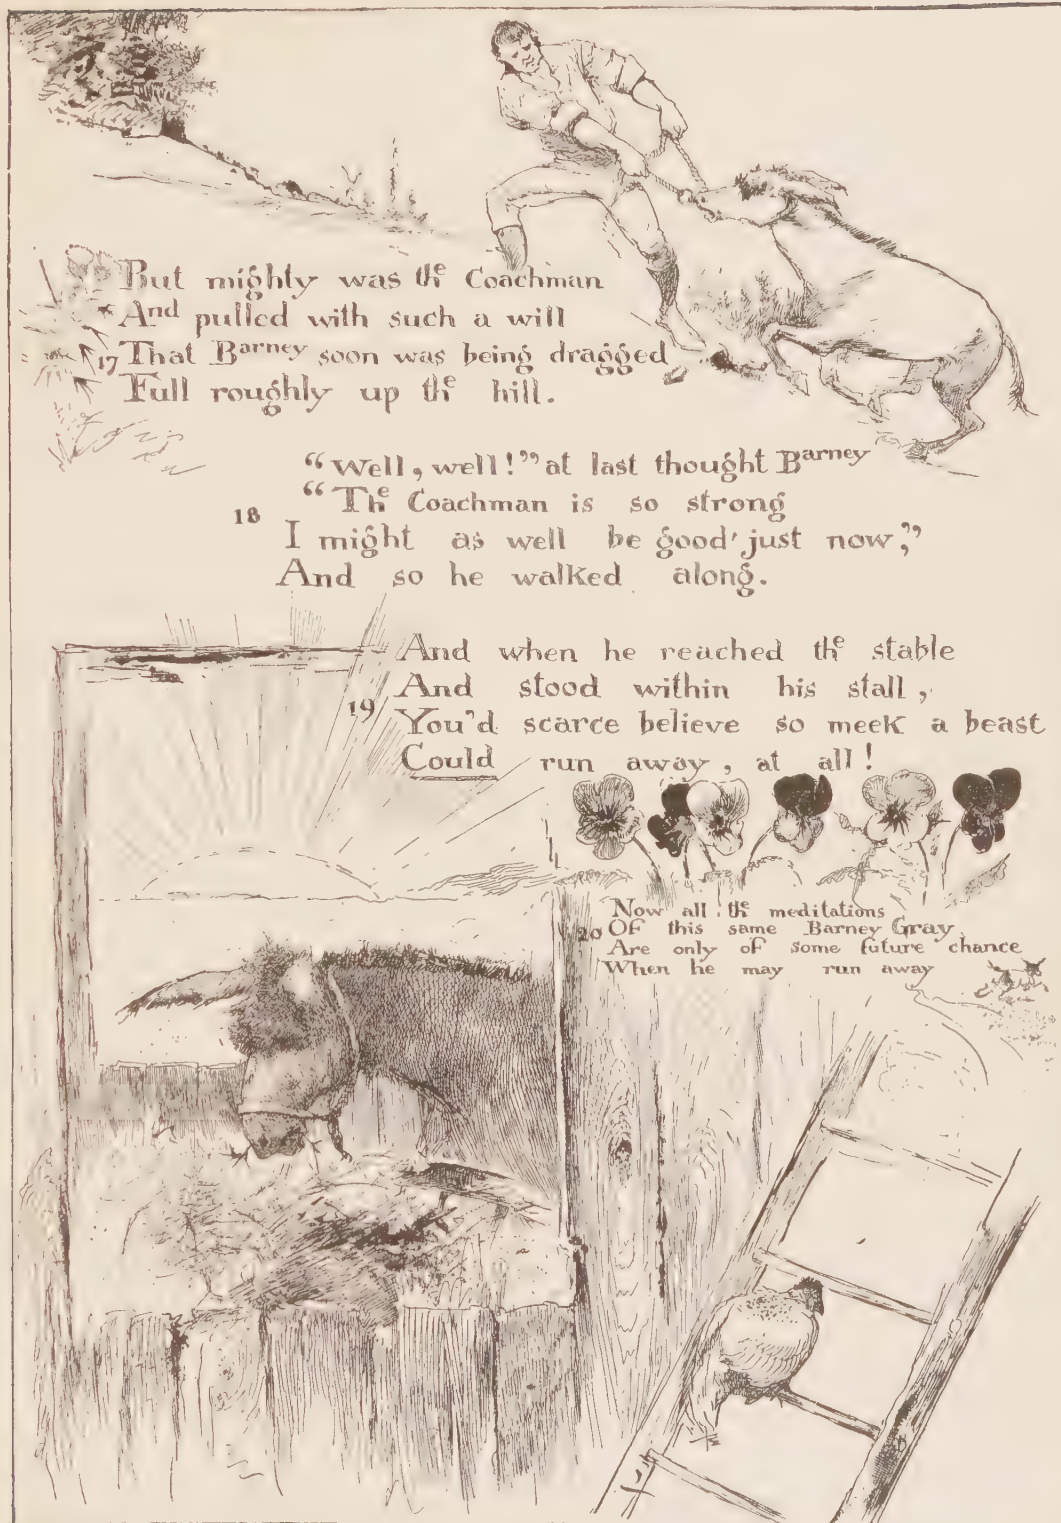 But mighty was the Coachman
And pulled with such a will
17 That Barney soon was being dragged
Full roughly up the hill.
“Well, well!” at last thought Barney
“The Coachman is so strong
18
I might as well be good just now,”
And so he walked along.
And when he reached the stable
And stood within his stall,
19
You'd scarce believe so meek a beast
Could run away, at all!
Now all the meditations
20 Of this same Barney Gray,
Are only of some future chance
When he may run away